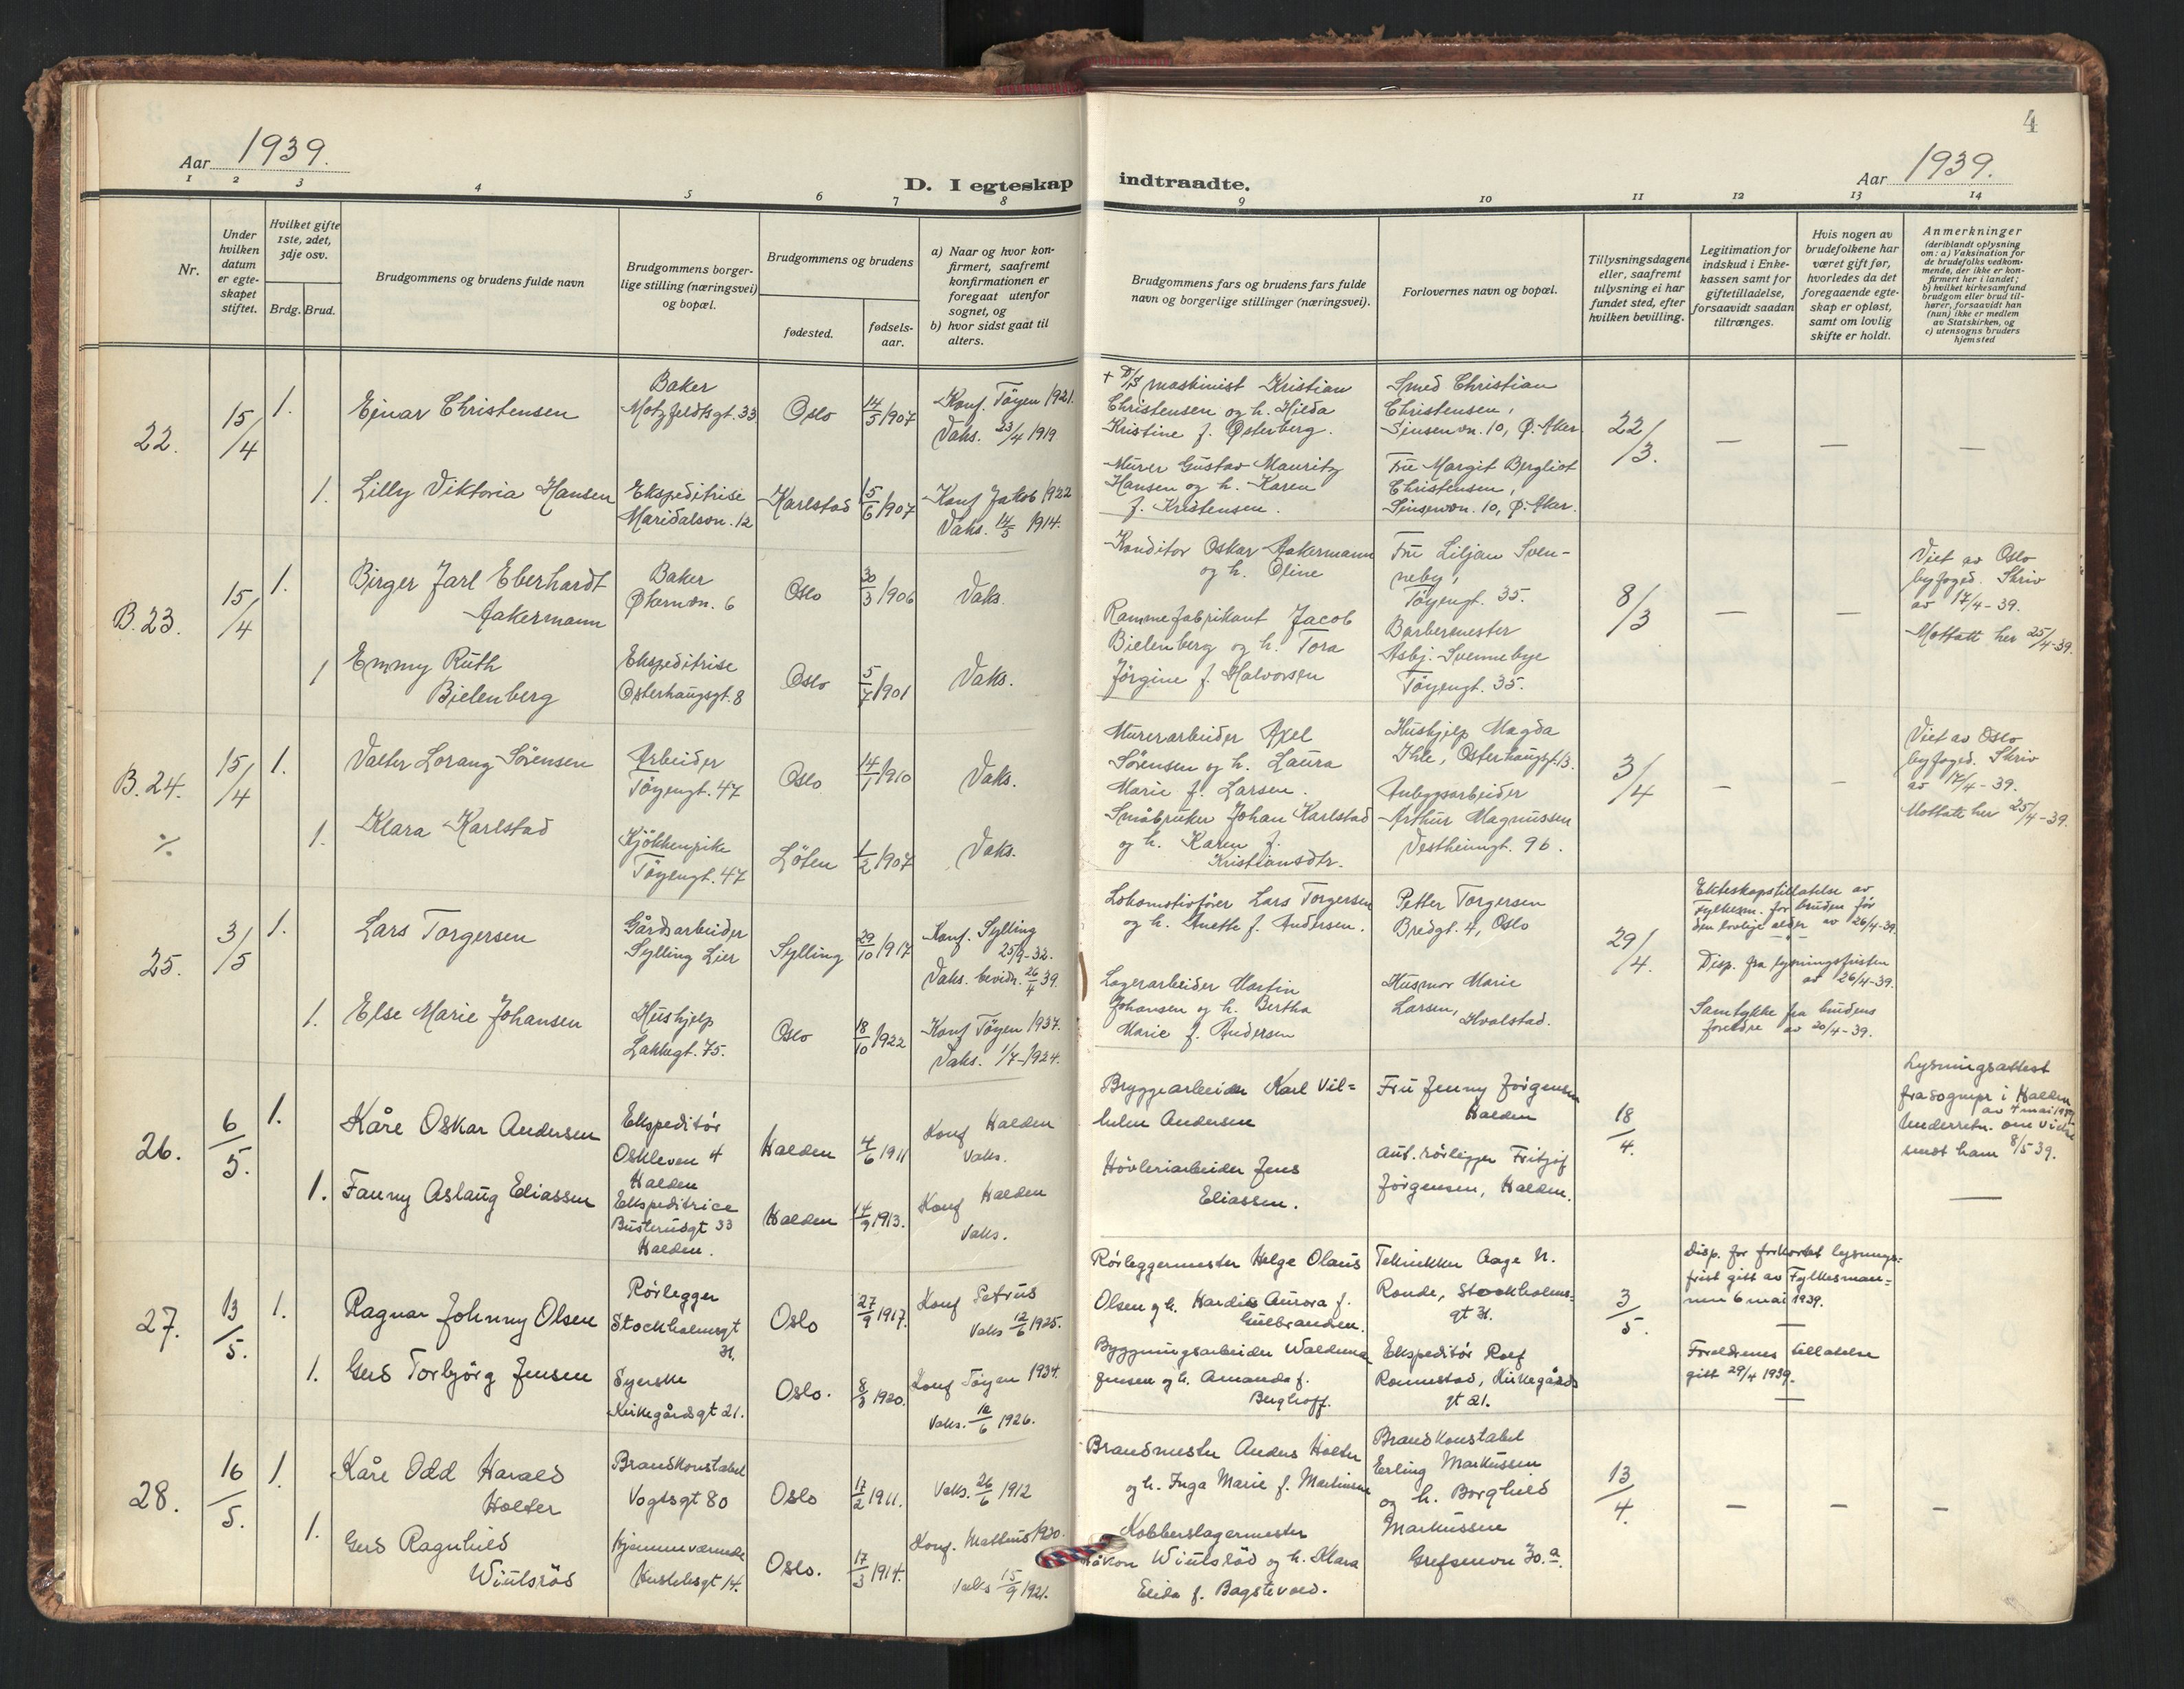 Aar 1939.
D. I egteskap
1 2 3 4 5 6 7 8
Nr.
Under hvilken datum er egte-skapet stiftet.
Hvilket gifte 1ste, 2det, 3dje osv.
Brdg. Brud.
Brudgommens og brudens fulde navn
Brudgommens borger-lige stilling (næringsvei) og bopæl.
Brudgommens og brudens
fødested.
fødsels-aar.
a) Naar og hvor kon-firmert, saafremt konfirmationen er foregaat utenfor sognet, og
b) hvor sidst gaat til alters.
22. 15/4 1. Ejnar Christensen
Baker
Motzfeldtsgt. 33
Oslo 14/5 1907
Konf. Töyen 1921.
Vaks. 23/4 1919
1. Lilly Viktoria Hansen
Ekspeditrise
Maridalsvn. 12
Karlstad 15/6 1907
Konf Jakob 1922
Vaks. 14/5 1914.
B. 23. 15/4 1. Birger Jarl Eberhardt
Aakermann
Baker
Økernvn. 6
Oslo 30/3 1906 Vaks.
1 Emmy Ruth
Bielenberg
Ekspeditrise
Osterhaugsgt. 8
Oslo 5/7 1901 Vaks.
B. 24. 15/4 1. Valter Lorang Sörensen
Arbeider
Töyengt. 47
Oslo 14/1 1910 Vaks.
1. Klara Karlstad
Kjökkenpike
Töyengt. 47
Löten 1/2 1907 Vaks.
25. 3/5 1. Lars Torgersen
Gårdsarbeider
Sylling Lier
Sylling 29/10 1917
Konf. Sylling
25/9-32.
Vaks. bevidn. 26/4 39.
1. Else Marie Johansen
Hushjelp
Lakkegt. 75.
Oslo 18/10 1922
Konf Töyen 1937.
Vaks. 1/7-1924.
26. 6/5. 1. Kåre Oskar Andersen
Ekspeditör
Oskleven 4
Halden
Halden 4/6 1911
Konf Halden
Vaks.
1. Fanny Aslaug Eliassen
Ekspeditrice
Busterudgt 33
Halden.
Halden 14/9 1913.
Konf Halden
Vaks.
27. 13/5. 1. Ragnar Johnny Olsen
Rörlegger
Stockholmsgt
31.
Oslo 27/9 1917.
Konf Petrus
Vaks 12/6 1925.
1. Gerd Torbjörg Jensen
Syerske
Kirkegårdsgt 21.
Oslo. 8/3 1920.
Konf Töyen 1934.
Vaks. 12/6 1926.
28. 16/5. 1. Kåre Odd Harald
Holter
Brandkonstabel
Vogtsgt 80
Oslo 17/2 1911.
Vaks. 26/6 1912
1. Gerd Ragnhild
Wiulsröd
Hjemmeværende
Oslo. 17/3 1914.
Konf. Matteus 1930.
Vaks 15/9 1921.
4
indtraadte.
Aar 1939.
9 10 11 12 13 14
Brudgommens fars og brudens fars fulde navn og borgerlige stillinger (næringsvei).
Forlovernes navn og bopæl.
Tillysningsdagene eller, saafremt tillysning ei har fundet sted, efter hvilken bevilling.
Legitimation for indskud i Enke-kassen samt for giftetilladelse, forsaavidt saadan tiltrænges.
Hvis nogen av brudefolkene har været gift før, hvorledes da det foregaaende egte-skap er opløst, samt om lovlig skifte er holdt.
Anmerkninger
(deriblandt oplysning om: a) Vaksination for de brudefolks vedkom-mende, der ikke er kon-firmert her i landet;
b) hvilket kirkesamfund brudgom eller brud til-hører, forsaavidt han (hun) ikke er medlem av Statskirken, og
c) utensogns bruders hjemsted
+ D/S maskinist Kristian
Christensen og h. Hilda
Kristine f. Østerberg.
Smed Christian
Christensen,
Sinsenvn. 10, Ø. Aker.
22/3. — — —
Murer Gustav Mauritz
Hansen og h. Karen
f. Kristensen.
Fru Margit Bergliot
Christensen,
Sinsenvn. 10, Ø. Aker.
Konditor Oskar Aakermann
og h. Oline
Fru Liljan Sven-
neby,
Töyengt. 35.
8/3 — —
Viet av Oslo
byfoged. Skriv
av 17/4-39.
Mottatt her 25/4-39.
Rammefabrikant Jacob
Bielenberg og h. Tora
Jörgine f. Halvorsen
Barbermester
Asbj. Svennebye
Töyengt. 35.
Murerarbeider Axel
Sörensen og h. Laura
Marie f. Larsen.
Hushjelp Magda
Ihle, Osterhausgt. 13.
3/4 — —
Viet av Oslo
byfoged. Skriv
av 17/4-39.
Mottatt her 25/4-39.
Småbruker Johan Karlstad
og h. Karen f.
Kristiansdtr.
Anleggsarbeider
Arthur Magnussen
Vestheimgt. 9b.
Lokomotivförer Lars Torgersen
og h. Anette f. Andersen.
Petter Torgersen
Bredgt. 4, Oslo
29/4.
Ekteskapstillatelse av
Fylkesm. for bruden för
den lovlige alder av 26/4-39.
Disp. fra lysningsfristen
av 26/4-39.
Lagerarbeider Martin
Johansen og h. Bertha
Marie f. Andersen
Husmor Marie
Larsen, Hvalstad.
Samtykke fra brudens
foreldre av 20/4-39.
Bryggearbeider Karl Vil=
helm Andersen
Fru Jenny Jörgensen
Halden
18/4.
Lysningsattest
fra sognepr i Halden
av 4 mai 1939
Underretn. om vielse
sendt ham 8/5 39.
—
Hövleriarbeider Jens
Eliassen.
Aut. rörlegger Fritjof
Jörgensen, Halden.
Rörleggermester Helge Olaus
Olsen og h. Hardis Aurora f.
Gulbrandsen.
Tekniker Aage N.
Ronde, Stockholms-
gt 31.
3/5.
Disp. for forkortet lysnings=
frist gitt av Fylkesman=
nen 6 mai 1939.
Bygningsarbeider Waldemar
Jensen og h. Amanda f.
Berghoff.
Ekspeditör Rolf
Ronnestad, Kirkegårds
gt 21.
Foreldrenes tillatelse
gitt 29/4 1939.
Brandmester Anders Holter
og h. Inga Marie f. Martinsen
Brandkonstabel
Erling Markussen
og h. Borghild
Markussen
Grefsenvn 30.a.
13/4. — — —
Kobberslagermester
Håkon Wiulsröd og h. Klara
Elida f. Bagstevold.